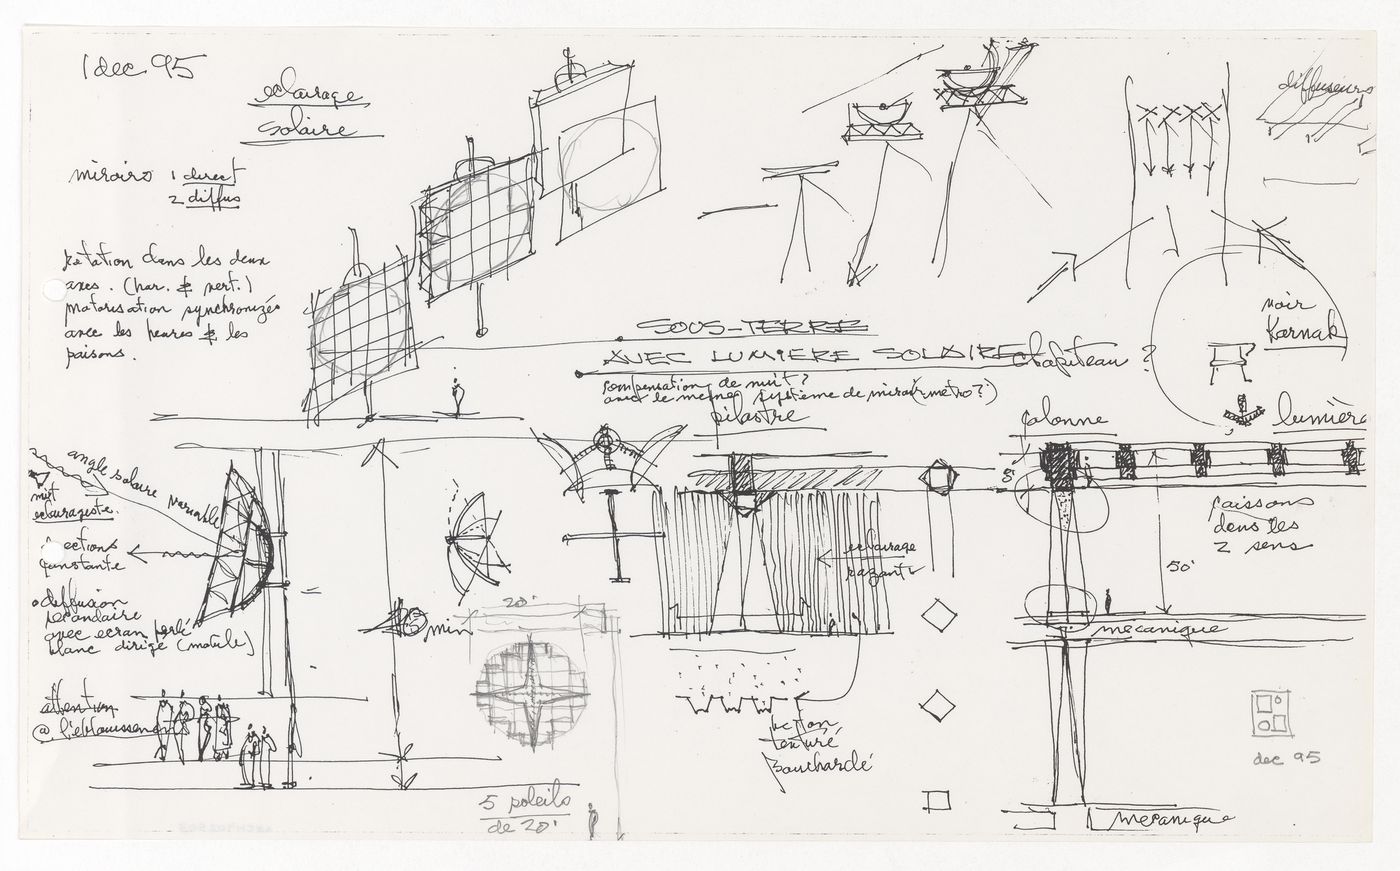 1 dec 95
eclairage
solaire
miroirs 1 direct
2 diffus
rotation dans les deux
axes. (hor. & vert.)
motorisation synchronizée
avec les heures & les
saisons.
SOUS-TERRE
AVEC LUMIERE SOLAIRE
compensation de nuit?
avec le meme systeme de miroir (metro?)
pilastre
chapiteau ?
diffuseurs
voir
Karnak
colonne
lumière
8'
caissons
dans les
2 sens
50'
mecanique
mecanique
angle solaire variable
eclairagiste.
constante
diffusion
secondaire
avec ecran perlé
blanc dirigé (mobile)
attention
@ l'eblouissement
min
20'
5 soleils
de 20'
eclairage
rasant
beton
texturé
Bouchardé
dec 95